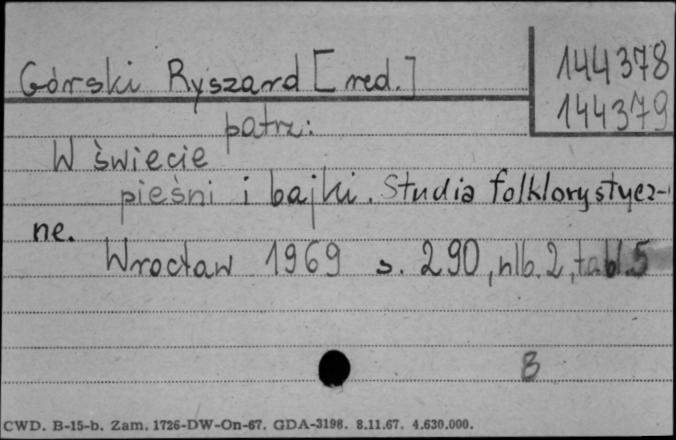 Górski Ryszard [red.]
144378
144379
patrz:
W świecie
pieśni i bajki. Studia folklorystycz-
ne.
Wrocław 1969 s. 290, nlb. 2, tabl. 5
B
CWD. B-15-b. Zam. 1726-DW-On-67. GDA-3198. 8.11.67. 4.630.000.